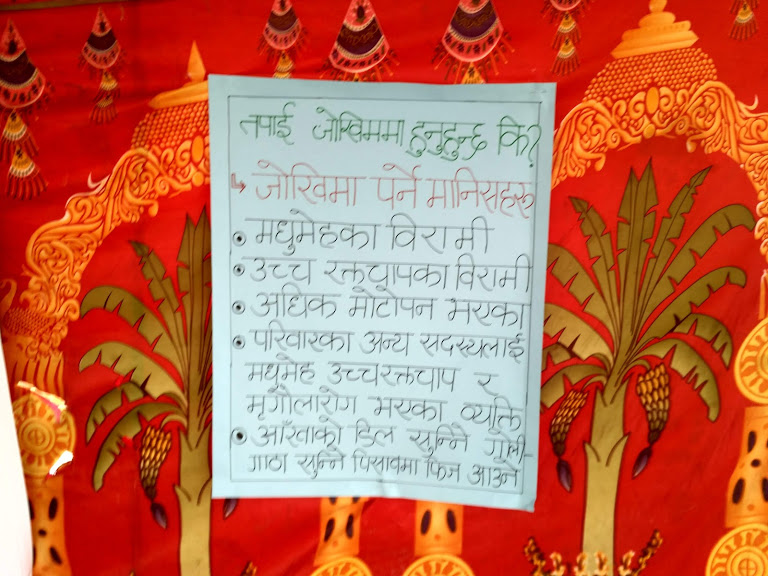 तपाई जोखिममा हुनुहुन्छ कि?
↳ जोखिमा पर्ने मानिसहरू
• मधुमेहका विरामी
• उच्च रक्तचापका विरामी
• अधिक मोटोपन भएका
• परिवारका अन्य सदस्यलाई
मधुमेह उच्चरक्तचाप र
मृगौलारोग भएका व्यक्ति
• आँखाको डिल सुन्निने गोली-
गाठा सुन्निने पिसावमा फिज आउने